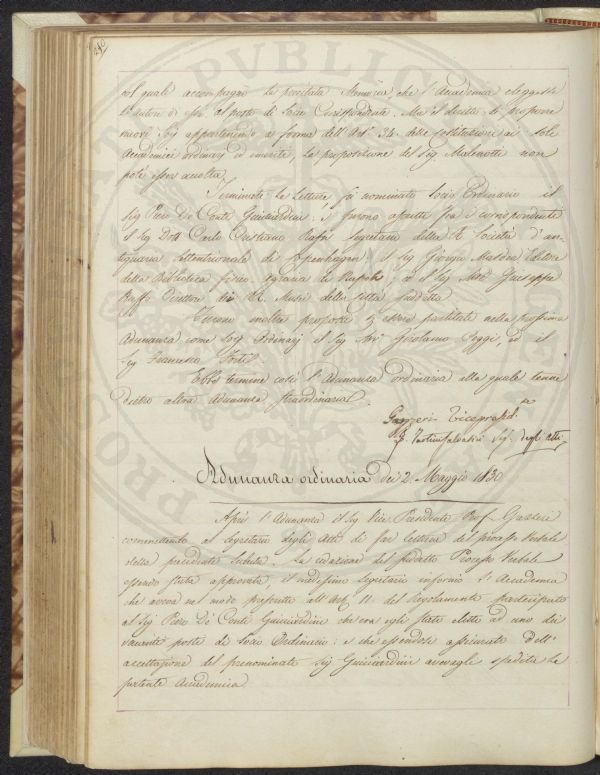 210
col quale accompagna la precitata Memoria che l'Accademia eleggesse
l'autore di essa al posto di Socio Corrispondente. Ma il diritto di proporre
nuovi Soj appartenendo a forma dell'Art. 34. delle Costituzioni ai soli
Accademici ordinarj ed emeriti, la proposizione del Sig. Malenotti non
poté essere accolta.
Terminate le Letture fu nominato Socio Ordinario il
Sig. Piero De' Conti Guicciardini: e furono aggiunti fra i corrispondenti
il Sig. Dott. Carlo Cristiano Rafn Segretario della R. Società d'an-
tiquaria Settentrionale di Copenhagen; il Sig. Giorgio Masdea Editore
della Biblioteca fisico agraria di Napoli, e il Sig. Giuseppe
Raffi Direttore dei RR. Musei della città suddetta.
Furono inoltre proposti per essere partitati nella prossima
Adunanza come Socj Ordinarj il Sig. Avv. Girolamo Poggi, ed il
Sig. Francesco Forti.
Ebbe termine così l'Adunanza ordinaria alla quale tenne
dietro altra adunanza straordinaria.
Gazzeri Vicepresid.te
F. Tartini Salvatici Seg. degli Atti
Adunanza ordinaria dei 2. Maggio 1830
Aprì l'Adunanza il Sig. Vice Presidente Prof. Gazzeri
commettendo al Segretario degli Atti di far lettura del processo Verbale
della precedente Seduta. La redazione del suddetto Processo Verbale
essendo stata approvata, il medesimo Segretario informò l'Accademia
che aveva nel modo prescritto all'Art. 11. del Regolamento partecipato
al Sig. Piero de' Conti Guicciardini che era egli stato eletto ad uno dei
vacanti posti di Socio Ordinario: e che essendosi assicurato dell'
accettazione del prenominato Sig. Guicciardini aveagli spedita la
patente Accademica